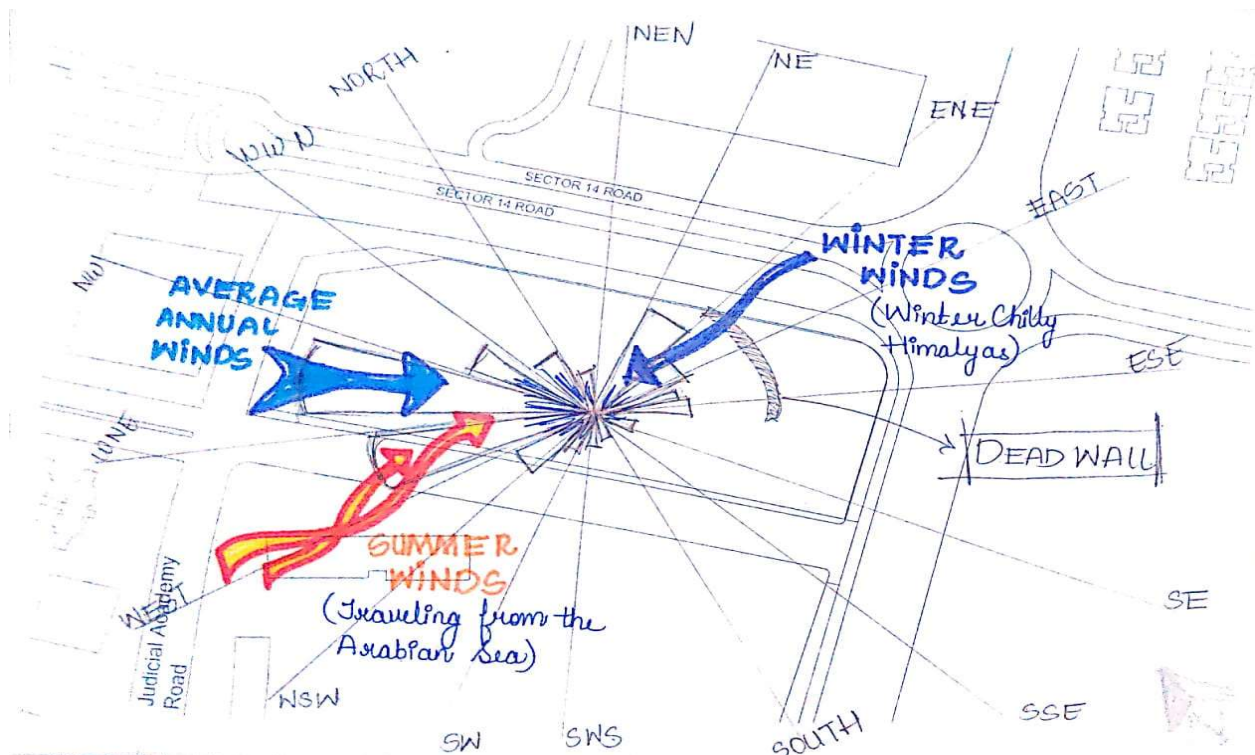 NEN
NORTH
NE
ENE
NWN
SECTOR 14 ROAD
SECTOR 14 ROAD
EAST
NW
AVERAGE
ANNUAL
WINDS
WINTER
WINDS
(Winter Chilly
Himalyas)
ESE
DEAD WALL
SUMMER
WINDS
(Traveling from the
Arabian Sea)
WEST
Judicial Academy
Road
WSW
SW
SWS
SOUTH
SSE
SE